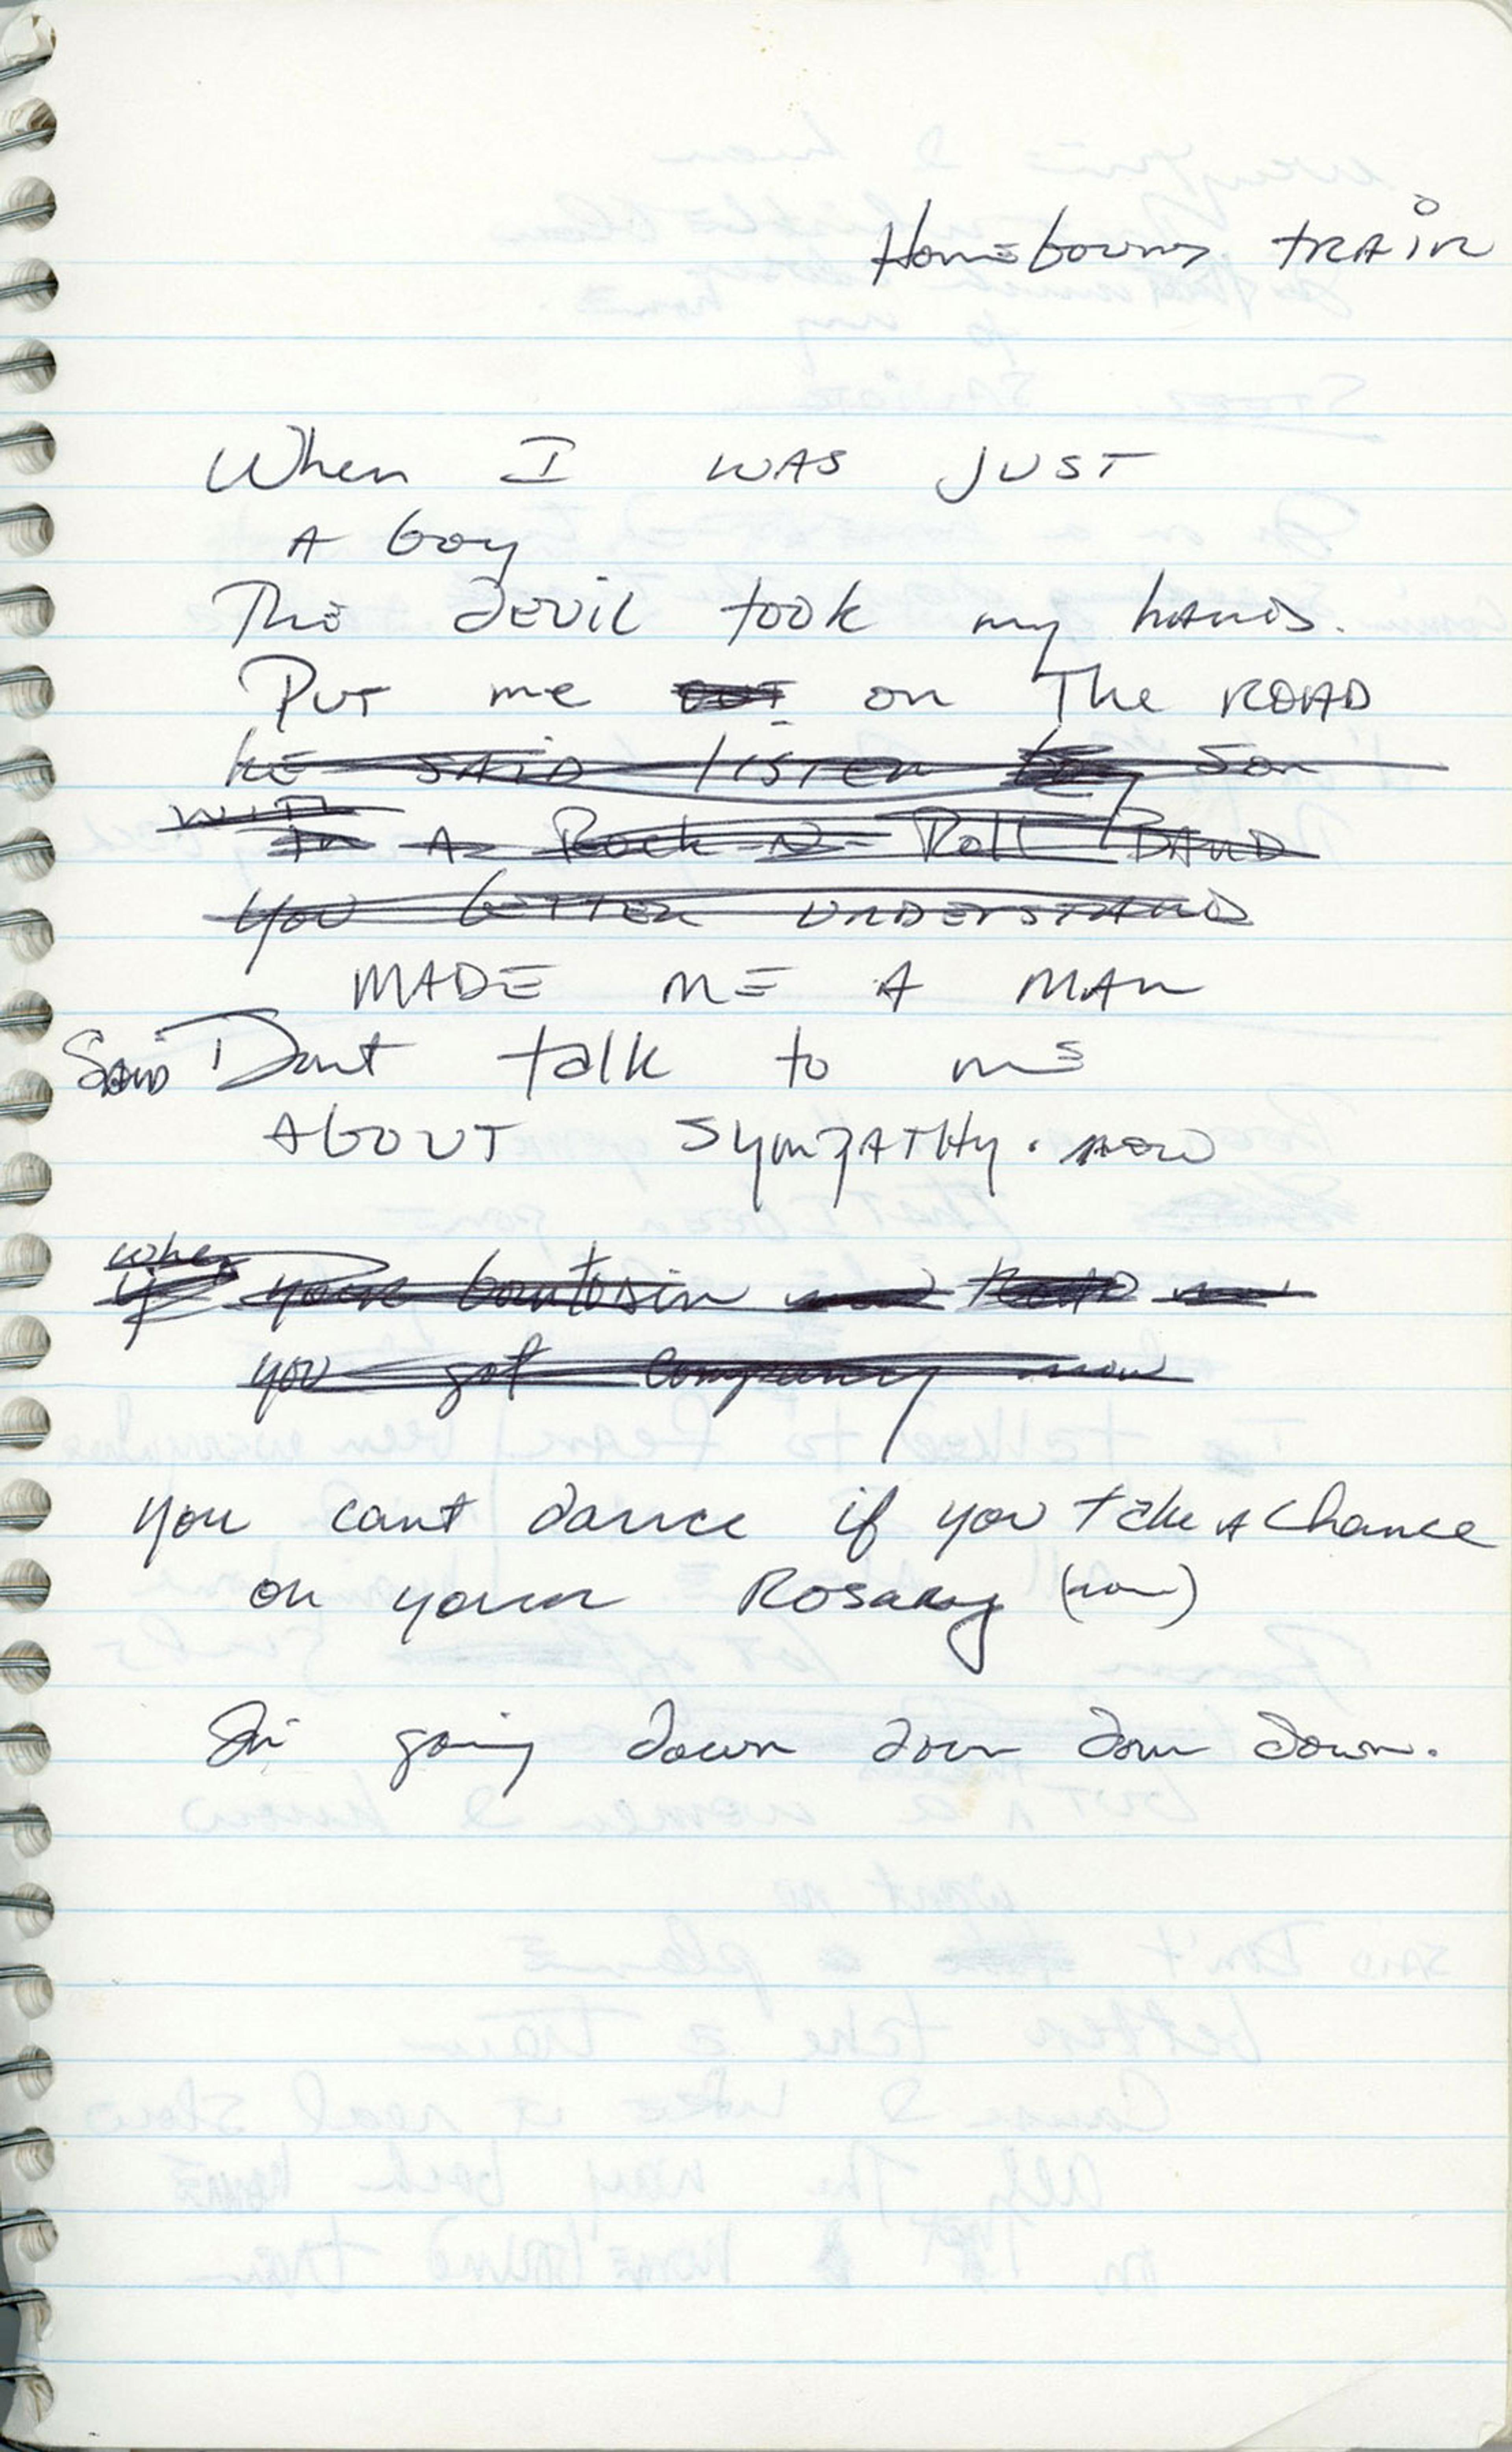 Homebound train
When I was just
a boy
The devil took my hand.
Put me out on the road
he said listen boy son
with
in a Rock-n-Roll band
you better understand
MADE ME A MAN
Said Dont talk to me
about sympathy. now
when
if your
you got company now
you cant dance if you take a chance
on your Rosary (now)
Im going down down down down.